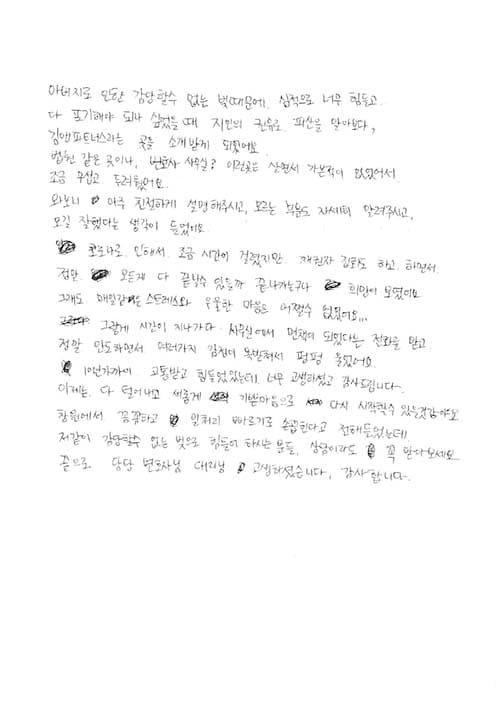 아버지로 인한 감당할수 없는 빚때문에, 심적으로 너무 힘들고
다 포기해야 되나 싶었을때 지인의 권유로 파산을 알아보다,
김앤파트너스라는 곳을 소개받게 되었어요
법원 같은곳이나, 변호사 사무실? 이런곳은 살면서 가본적이 없었어서
조금 무섭고 두려웠어요.
와보니 아주 친절하게 설명해주시고, 모르는 부분도 자세히 알려주시고,
오길 잘했다는 생각이 들었어요
코로나로 인해서 조금 시간이 걸렸지만 채권자 집회도 하고 하면서
정말 모든게 다 끝날수 있을까 끝나가는구나 희망이 보였어요
그래도 매일같은 스트레스와 우울한 마음은 어쩔수 없었어요...
그렇게 시간이 지나가다 사무실에서 면책이 되었다는 전화를 받고
정말 안도하면서 여러가지 감정이 북받쳐서 펑펑 울었어요
10년가까이 고통받고 힘들었었는데 너무 고생하셨고 감사드립니다
이제는 다 털어내고 새롭게 기쁜마음으로 다시 시작할수 있을것같아요
창원에서 꼼꼼하고 일처리 빠르기로 손꼽힌다고 전해들었는데
저같이 감당할수 없는 빚으로 힘들어 하시는 분들, 상담이라도 꼭 받아보세요
끝으로 담당 변호사님 대리님 고생하셨습니다, 감사합니다.